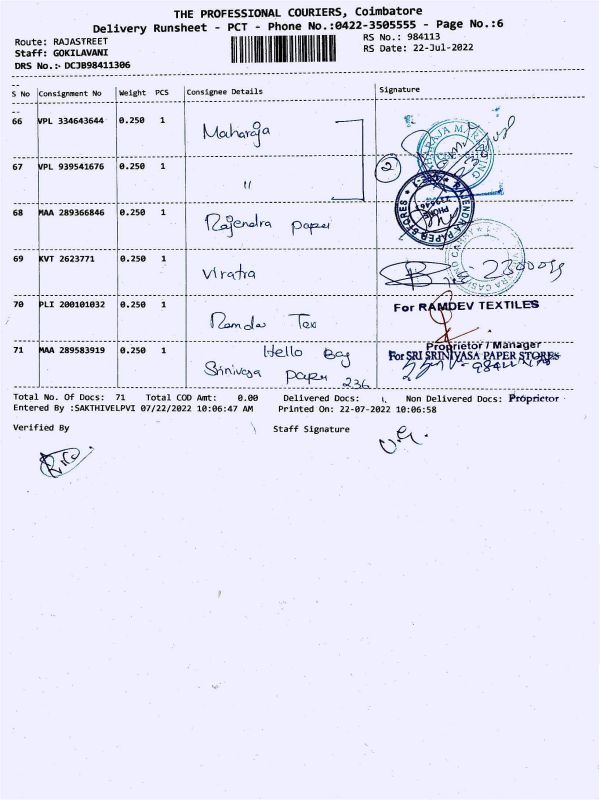 THE PROFESSIONAL COURIERS, Coimbatore
Delivery Runsheet - PCT - Phone No.:0422-3505555 - Page No.:6
Route: RAJASTREET
RS No.: 984113
Staff: GOKILAVANI
RS Date: 22-Jul-2022
DRS No.:- DCJB98411306
S No Consignment No Weight PCS Consignee Details Signature
66 VPL 334643644 0.250 1 Maharaja
67 VPL 939541676 0.250 1 " 2
68 MAA 289366846 0.250 1 Rajendra paper
RAJENDRA PAPER STORES
PHONE
69 KVT 2623771 0.250 1 Viratra
70 PLI 200101032 0.250 1 Ramdev Tex
For RAMDEV TEXTILES
Proprietor / Manager
71 MAA 289583919 0.250 1 Hello Bag
Srinivasa paper 236
For SRI SRINIVASA PAPER STORES
Total No. Of Docs: 71 Total COD Amt: 0.00 Delivered Docs: Non Delivered Docs: Proprietor
Entered By :SAKTHIVELPVI 07/22/2022 10:06:47 AM Printed On: 22-07-2022 10:06:58
Verified By Staff Signature